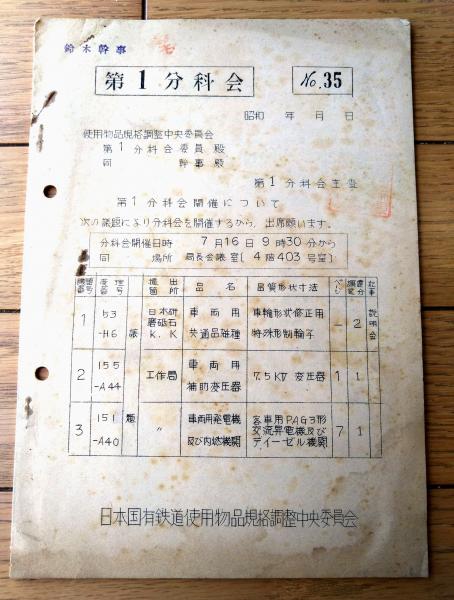 鈴木幹事
第1分科会
No.35
昭和 年 月 日
使用物品規格調整中央委員会
第1分科会委員殿
同 幹事殿
第1分科会主査
第1分科会開催について
次の議題により分科会を開催するから、出席願います。
分科会開催日時 7月16日9時30分から
同 場所 局長会議室(4階403号室)
提出箇所 品名 品質形状寸法 記事
1 53-H6 日本研磨砥石K.K 車両用共通品雑種 車輪形状修正用特殊形制輪子 一 2 説明会
2 155-A44 工作局 車両用補助変圧器 7.5KV変圧器 1 1
3 151-A40 〃 車両用発電機及び内燃機関 客車用PAG3形交流発電機及びディーゼル機関 7 1
日本国有鉄道使用物品規格調整中央委員会